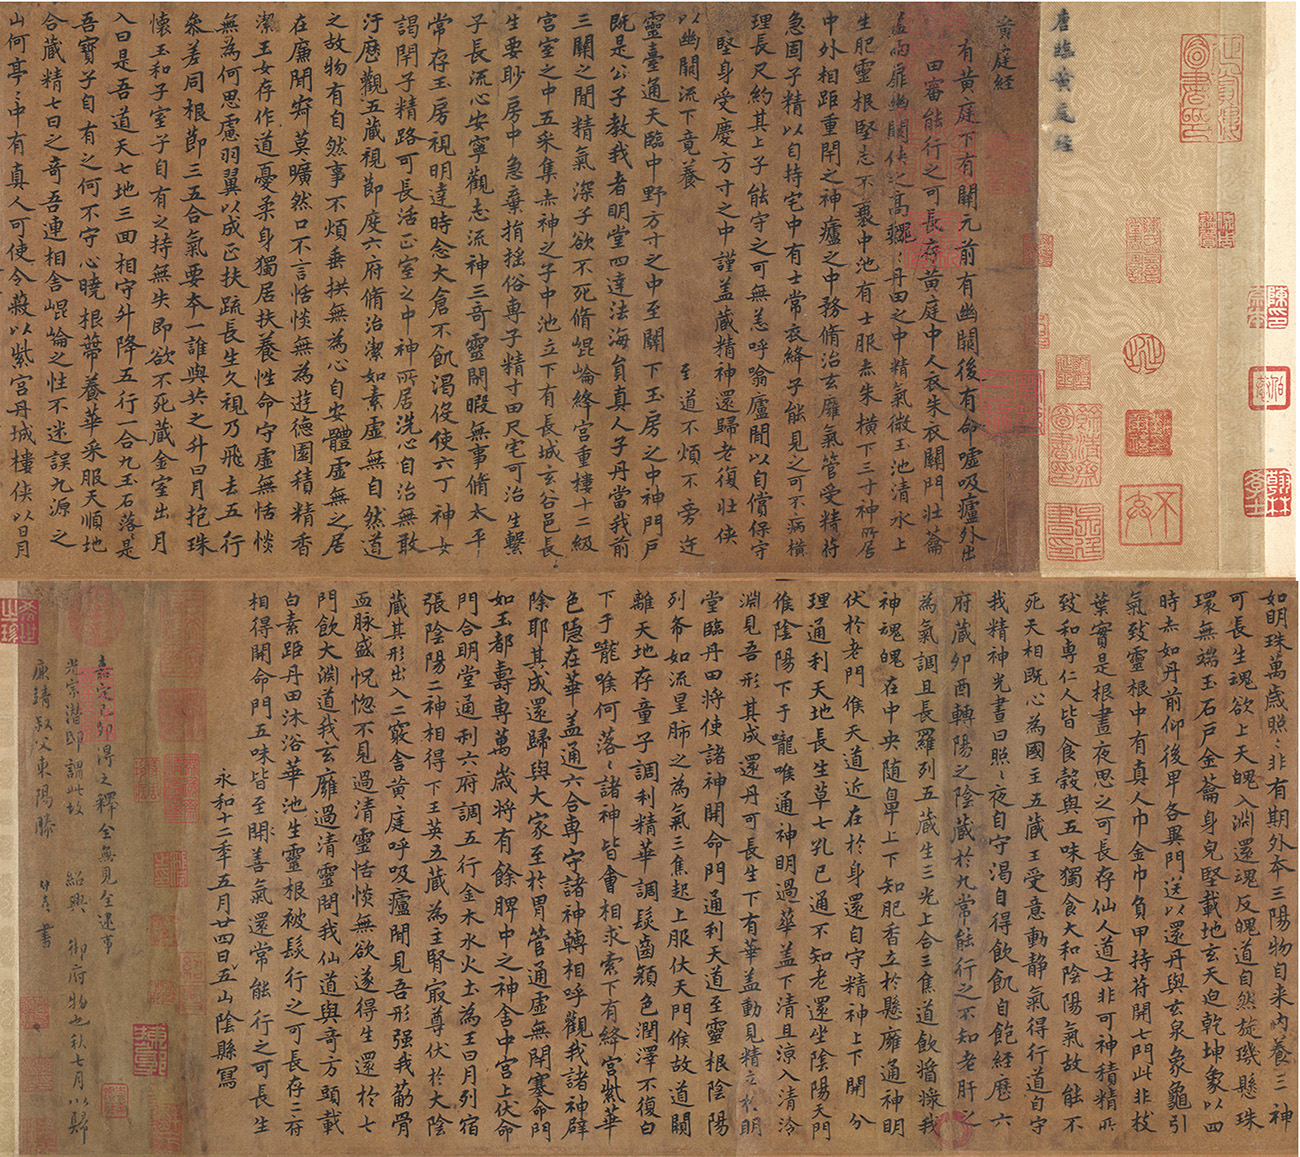 唐臨黃庭經
黃庭經
有黃庭下有關元前有幽闕後有命噓吸廬外出
田審能行之可長存黃庭中人衣朱衣關門壯蘥
蓋兩扉幽闕俠之高巍〻丹田之中精氣微玉池清水上
生肥靈根堅志不衰中池有士服赤朱橫下三寸神所居
中外相距重閇之神廬之中務脩治玄膺氣管受精符
急固子精以自持宅中有士常衣絳子能見之可不病橫
理長尺約其上子能守之可無恙呼噏廬間以自償保守
堅身受慶方寸之中謹蓋藏精神還歸老復壯俠
以幽闕流下竟養 至道不煩不旁迕
靈臺通天臨中野方寸之中至關下玉房之中神門戶
既是公子教我者明堂四達法海員真人子丹當我前
三關之間精氣深子欲不死脩崐崘絳宮重樓十二級
宮室之中五采集赤神之子中池立下有長城玄谷邑長
生要眇房中急棄捐搖俗專子精寸田尺宅可治生繫
子長流心安寧觀志流神三奇靈閑暇無事脩太平
常存玉房視明達時念大倉不飢渴役使六丁神女
謁閇子精路可長活正室之中神所居洗心自治無敢
汙歷觀五藏視節度六府脩治潔如素虛無自然道
之故物有自然事不煩垂拱無為心自安體虛無之居
在廉閒寂莫曠然口不言恬惔無為遊德園積精香
潔玉女存作道憂柔身獨居扶養性命守虛無恬惔
無為何思慮羽翼以成正扶疏長生久視乃飛去五行
參差同根節三五合氣要本一誰與共之升日月抱珠
懷玉和子室子自有之持無失即欲不死藏金室出月
入日是吾道天七地三回相守升降五行一合九玉石落是
吾寶子自有之何不守心曉根蔕養華采服天順地
合藏精七日之奇吾連相舍崐崘之性不迷誤九源之
山何亭〻中有真人可使令蔽以紫宮丹城樓俠以日月
如明珠萬歲照〻非有期外本三陽物自来內養三神
可長生魂欲上天魄入淵還魂反魄道自然旋璣懸珠
環無端玉石戶金蘥身皃堅載地玄天迫乾坤象以四
時赤如丹前仰後卑各異門送以還丹與玄泉象龜引
氣致靈根中有真人巾金巾負甲持符開七門此非枝
葉實是根晝夜思之可長存仙人道士非可神積精所
致和專仁人皆食穀與五味獨食大和陰陽氣故能不
死天相既心為國主五藏王受意動静氣得行道自守
我精神光晝日照〻夜自守渴自得飲飢自飽經歷六
府藏卯酉轉陽之陰藏於九常能行之不知老肝之
為氣調且長羅列五藏生三光上合三焦道飲醬漿我
神魂魄在中央随鼻上下知肥香立於懸膺通神明
伏於老門候天道近在於身還自守精神上下開分
理通利天地長生草七孔已通不知老還坐陰陽天門
候陰陽下于嚨喉通神明過華蓋下清且涼入清泠
淵見吾形其成還丹可長生下有華蓋動見精立於明
堂臨丹田將使諸神開命門通利天道至靈根陰陽
列布如流星肺之為氣三焦起上服伏天門候故道闚
離天地存童子調利精華調髮齒顏色潤澤不復白
下于嚨喉何落〻諸神皆會相求索下有絳宮紫華
色隱在華蓋通六合專守諸神轉相呼觀我諸神辟
除耶其成還歸與大家至於胃管通虛無閇塞命門
如玉都壽專萬歲將有餘脾中之神舍中宮上伏命
門合明堂通利六府調五行金木水火土為王日月列宿
張陰陽二神相得下玉英五藏為主腎㝡尊伏於大陰
藏其形出入二竅舍黃庭呼吸廬間見吾形强我荕骨
血脉盛怳惚不見過清靈恬惔無欲遂得生還於七
門飲大淵道我玄膺過清靈問我仙道與奇方頭載
白素距丹田沐浴華池生靈根被髮行之可長存二府
相得開命門五味皆至開善氣還常能行之可長生
永和十二年五月廿四日五山陰縣寫